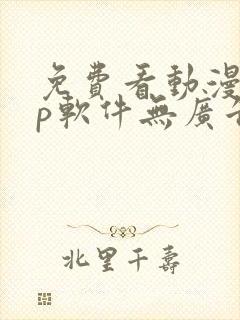 免費看動漫
p軟件無廣
北里千壽